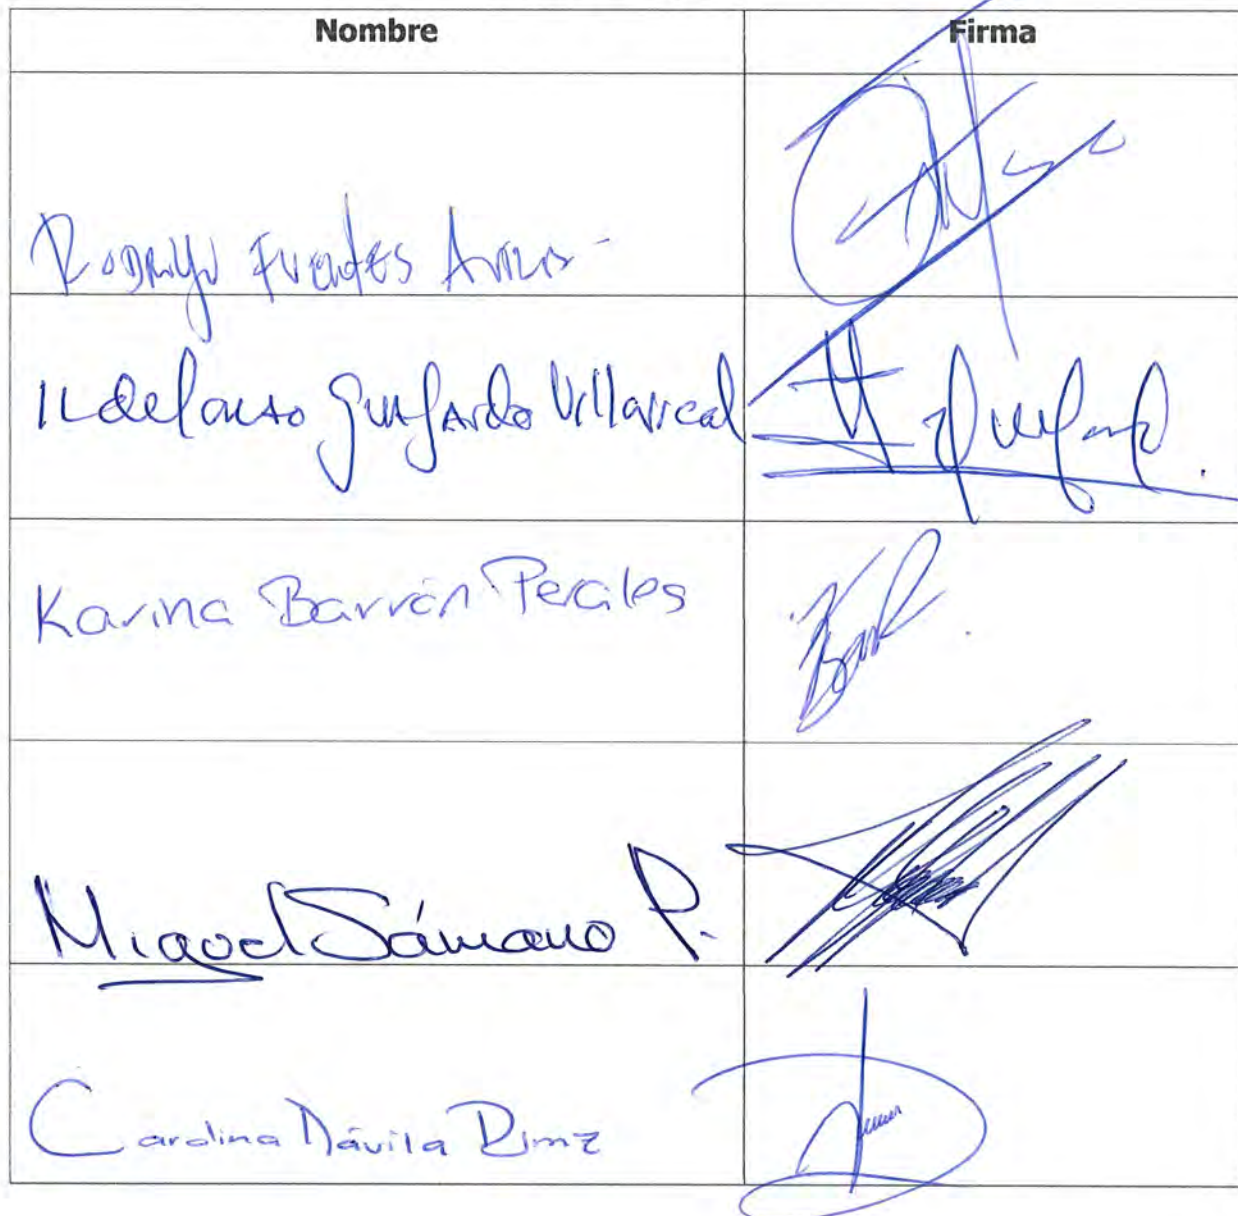 Nombre Firma
Rodrigo Fuentes
Ildefonso Guajardo Villarreal
Karina Barrón Perales
Miguel Sámano P.
Carolina Dávila